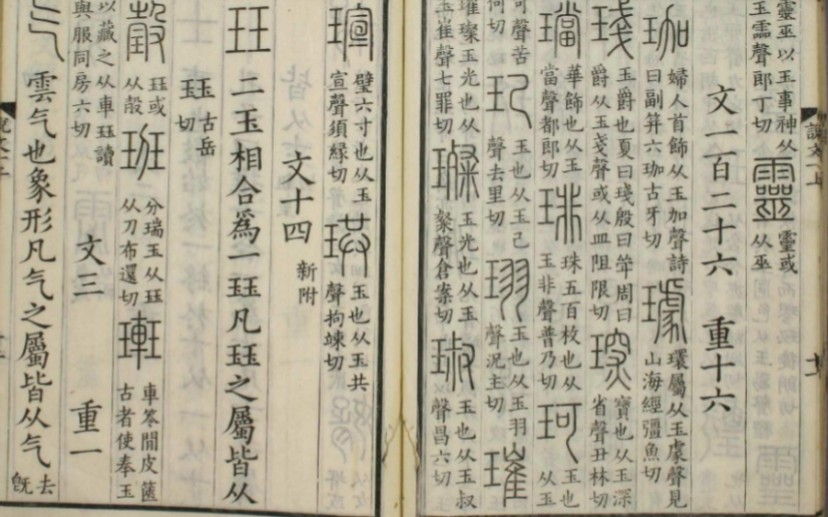 靈巫以玉事神从
玉霝聲郎丁切
靈
靈或
从巫
文二百二十六 重十六
珈
婦人首飾从玉加聲詩
曰副笄六珈古牙切
璩
環屬从玉豦聲見
山海經彊魚切
琖
玉爵也夏曰琖殷曰斝周曰
爵从玉戔聲或从皿阻限切
琛
寶也从玉深
省聲丑林切
璫
華飾也从玉
當聲都郎切
琲
珠五百枚也从
玉非聲普乃切
珂
玉也
从玉
可聲苦
何切
玘
玉也从玉己
聲去里切
珝
玉也从玉羽
聲況主切
璀
璀璨玉光也从
玉崔聲七罪切
璨
玉光也从玉
粲聲倉案切
琡
玉也从玉叔
聲昌六切
瑄
璧六寸也从玉
宣聲須緣切
珙
玉也从玉共
聲拘竦切
文十四 新附
玨
二玉相合爲一玨凡玨之屬皆从
玨
古岳
切
瑴
玨或
从㱿
班
分瑞玉从玨
从刀布還切
𤦲
車笭閒皮篋
古者使奉玉
以藏之从車玨讀
與服同房六切
文三 重一
气
雲气也象形凡气之屬皆从气
去
旣